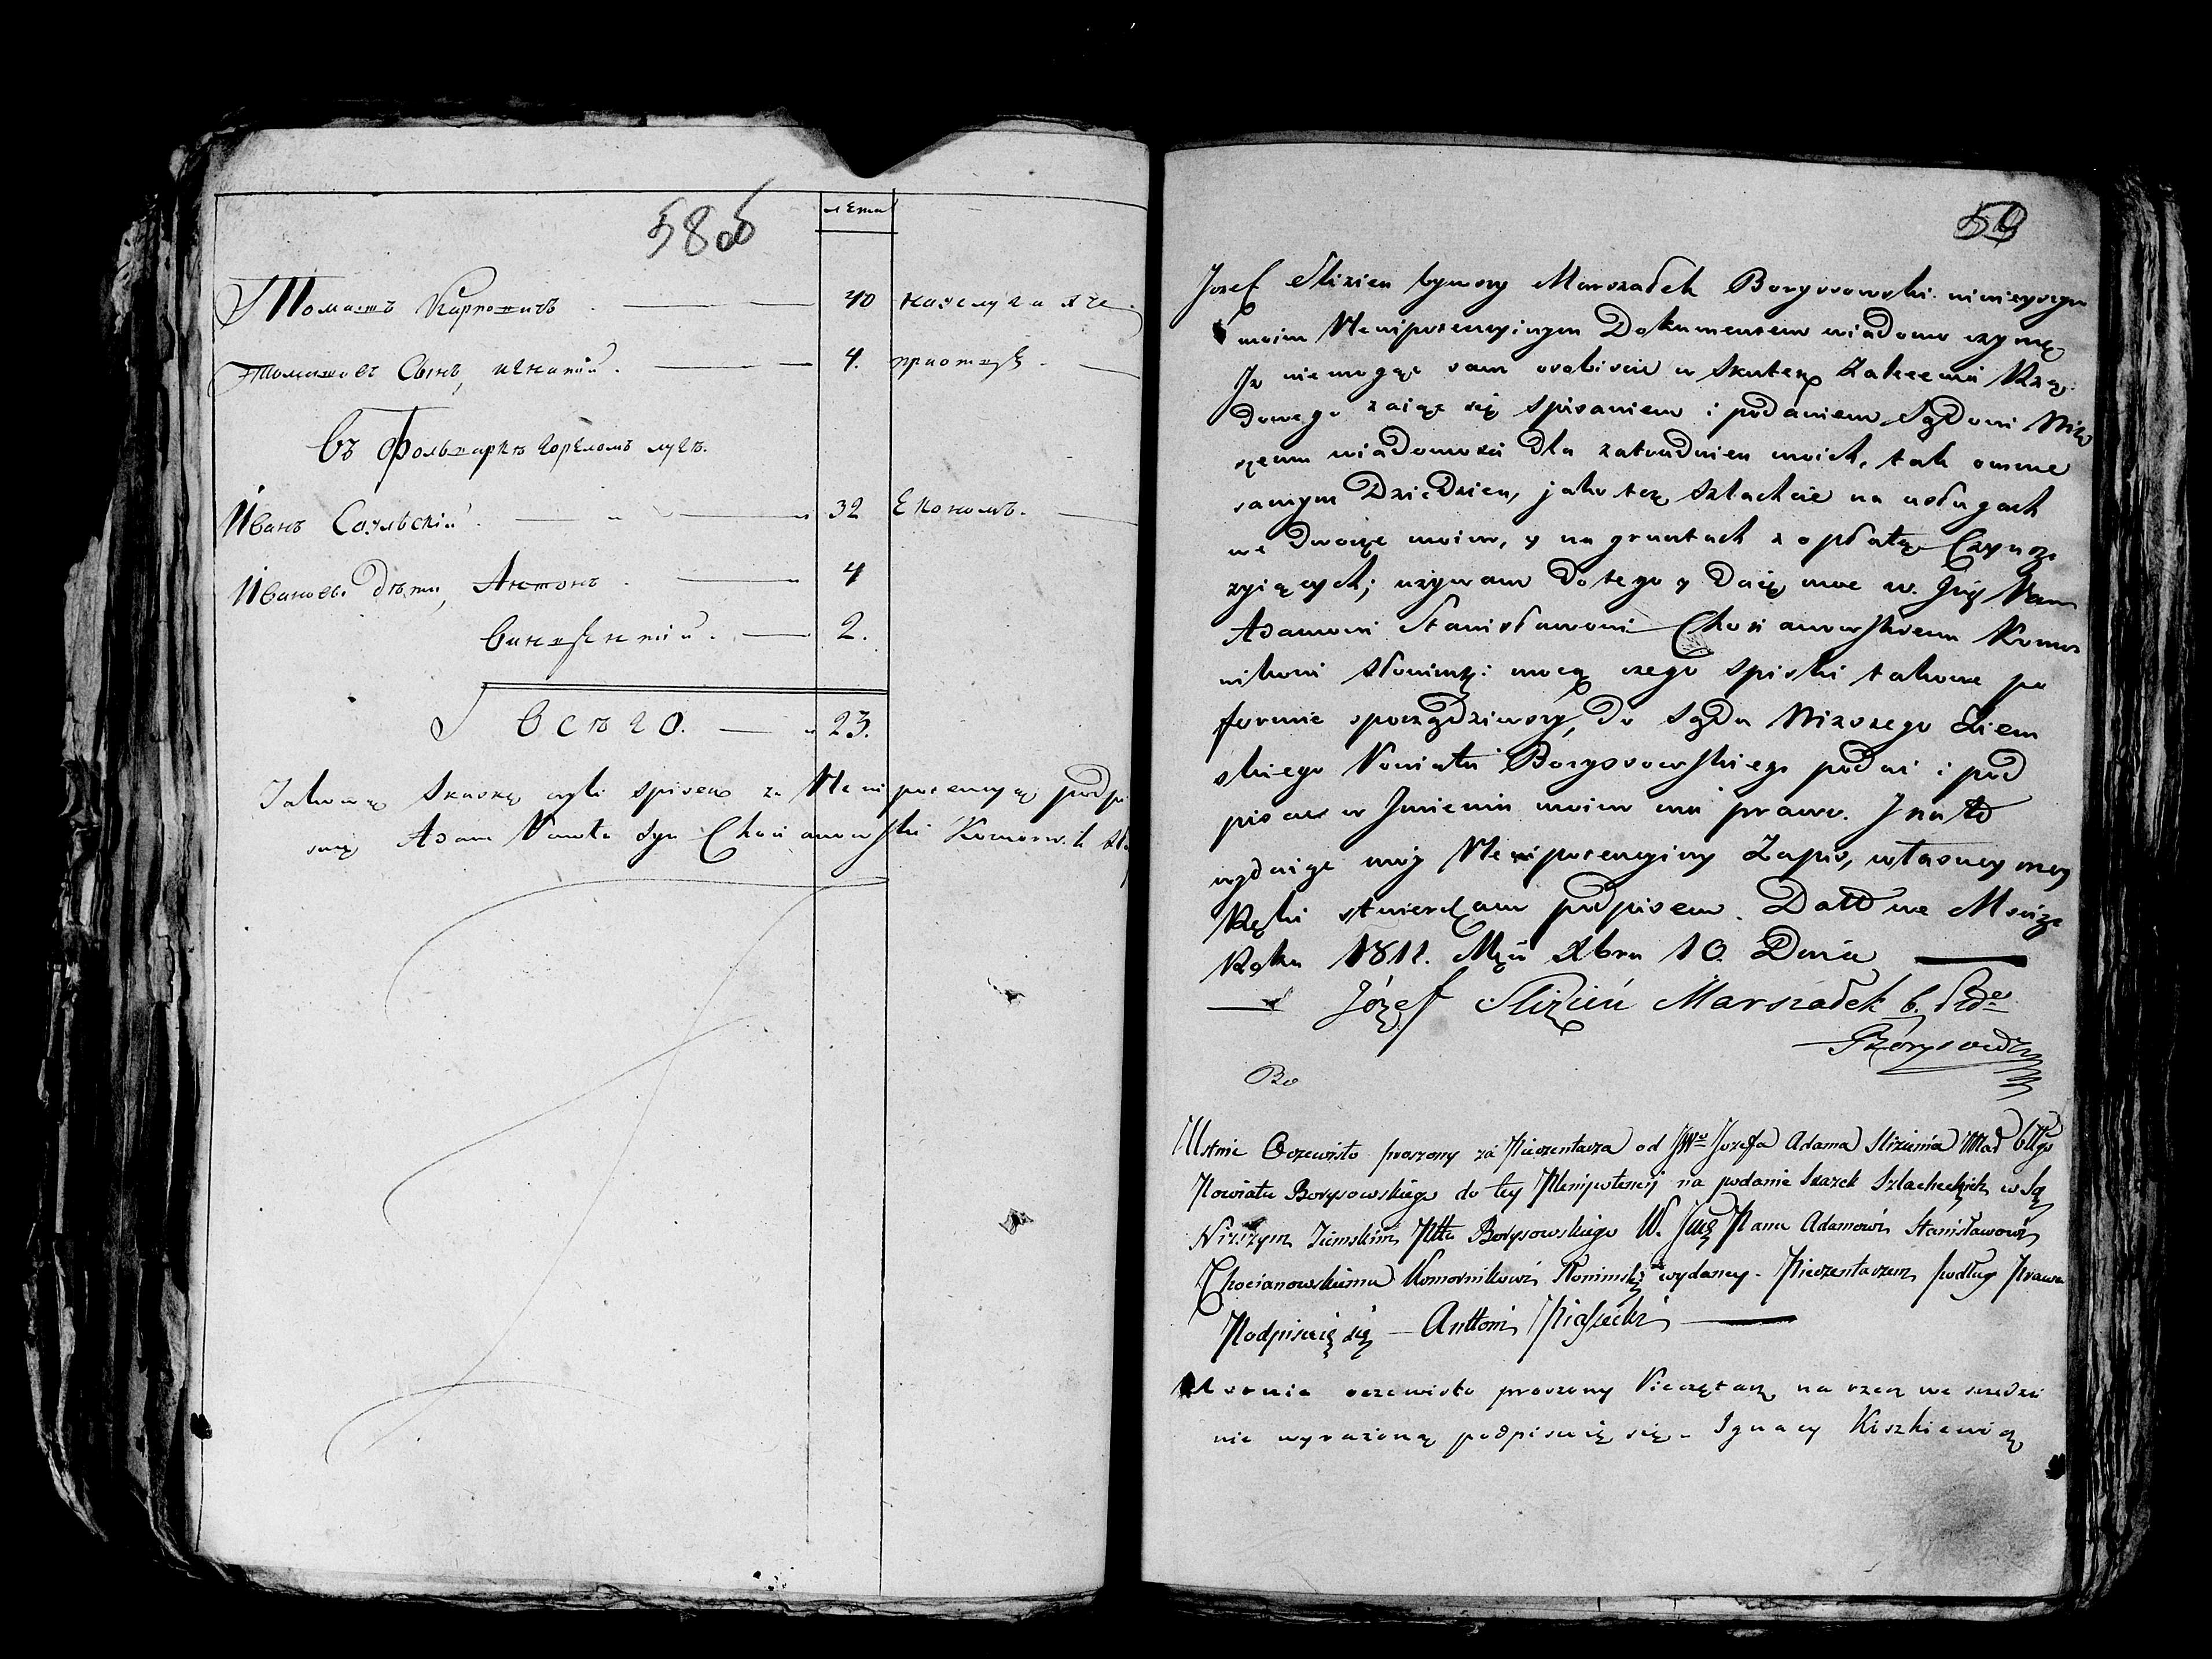 58 об
лета
Томашъ Карповичъ. 40
Томашовъ Сынъ, игнатій. 4.
Въ Фольваркѣ горѣломъ лугѣ.
Иванъ 32 Економъ.
Ивановы дѣти, Антонъ. 4
Викентій. 2.
Всѣго. 23.
Takową Skaskę czyli spisek za Plenipotencyą podpi
suię Adam Pawła Syn Chocianowski Komornik
59
Jozef Slizien bywszy Marszałek Borysowski ninieyszym
moim Plenipotencyinym Dokumentem wiadomo czynię
Iż niemogąc sam osobiscie w skutek Zalecenia Rzą
dowego zaiąć się spisaniem i podaniem Sądowi Niż
szemu wiadomości dla zatrudnien moich, tak o mnie
samym Dziedzicu, jako też Szlachcie na usługach
we dworze moim, y na gruntach z opłatą Czynszu
żyiących; używam do tego y daię moc w. Jmć Panu
Adamowi Stanisławowi Chocianowskiemu Komor
nikowi Słonimsk: mocą czego spiski takowe po
formie sporządziwszy, do Sądu Niższego Ziem
skiego Powiatu Borysowskiego podać i pod
pisać w Jmieniu moim ma prawo. J na to
wydaiąc móy Plenipotencyiny Zapis, własney mey
Ręki stwierdzam podpisem. Datt we Mściżu
Roku 1811. Mca Xbra 10. Dnia
Józef Slizień Marszałek b. Ptu
Borysow
Bo
Ustnie Oczewisto proszony za Pieczentarza od JWo Jozefa Adama Slizienia Mar błgo
Powiatu Borysowskiego do tey Plenipotencij na podanie Skazek Szlacheckich w Są
Niższym Ziemskim Pttu Borysowskiego W. Jmć Panu Adamowi Stanisławowi
Chocianowskiemu Komornikowi Słonimsk: wydaney. Pieczentarzem podług Prawa
Podpisuię się Anttoni Piasecki
Ustnie oczewisto proszony Pieczętarz na rzecz we srzedzi
nie wyrażoną podpisuię się. Ignacy Kiszkiewicz